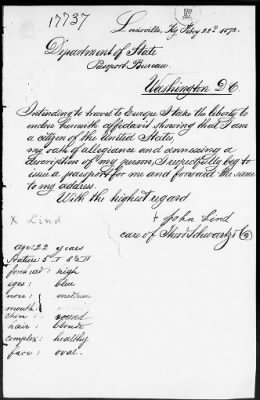 17737
Louisville, Ky. Feby 22d 1872.
Department of State
Passport Bureau.
Washington D.C.
Intending to travel to Europe I take the liberty to
enclose herewith affidavit showing that I am
a citizen of the United States,
my oath of allegiance and annexing a
description of my person, I respectfully beg to
issue a passport for me and forward the same
to my address.
With the highest regard
X Lind
+ John Lind
care of Theo Schwartz & Co
age: 22 years
Stature 5 F 8 3/4 In
forehead: high
eyes: blue
nose: medium
mouth:
chin: round
hair: blonde
complex: healthy
face: oval.